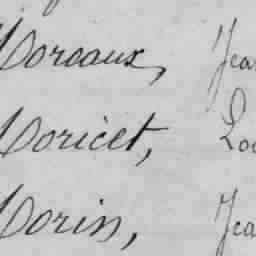 Moreaux, Jea
Moricet, Lou
Morin, Jea